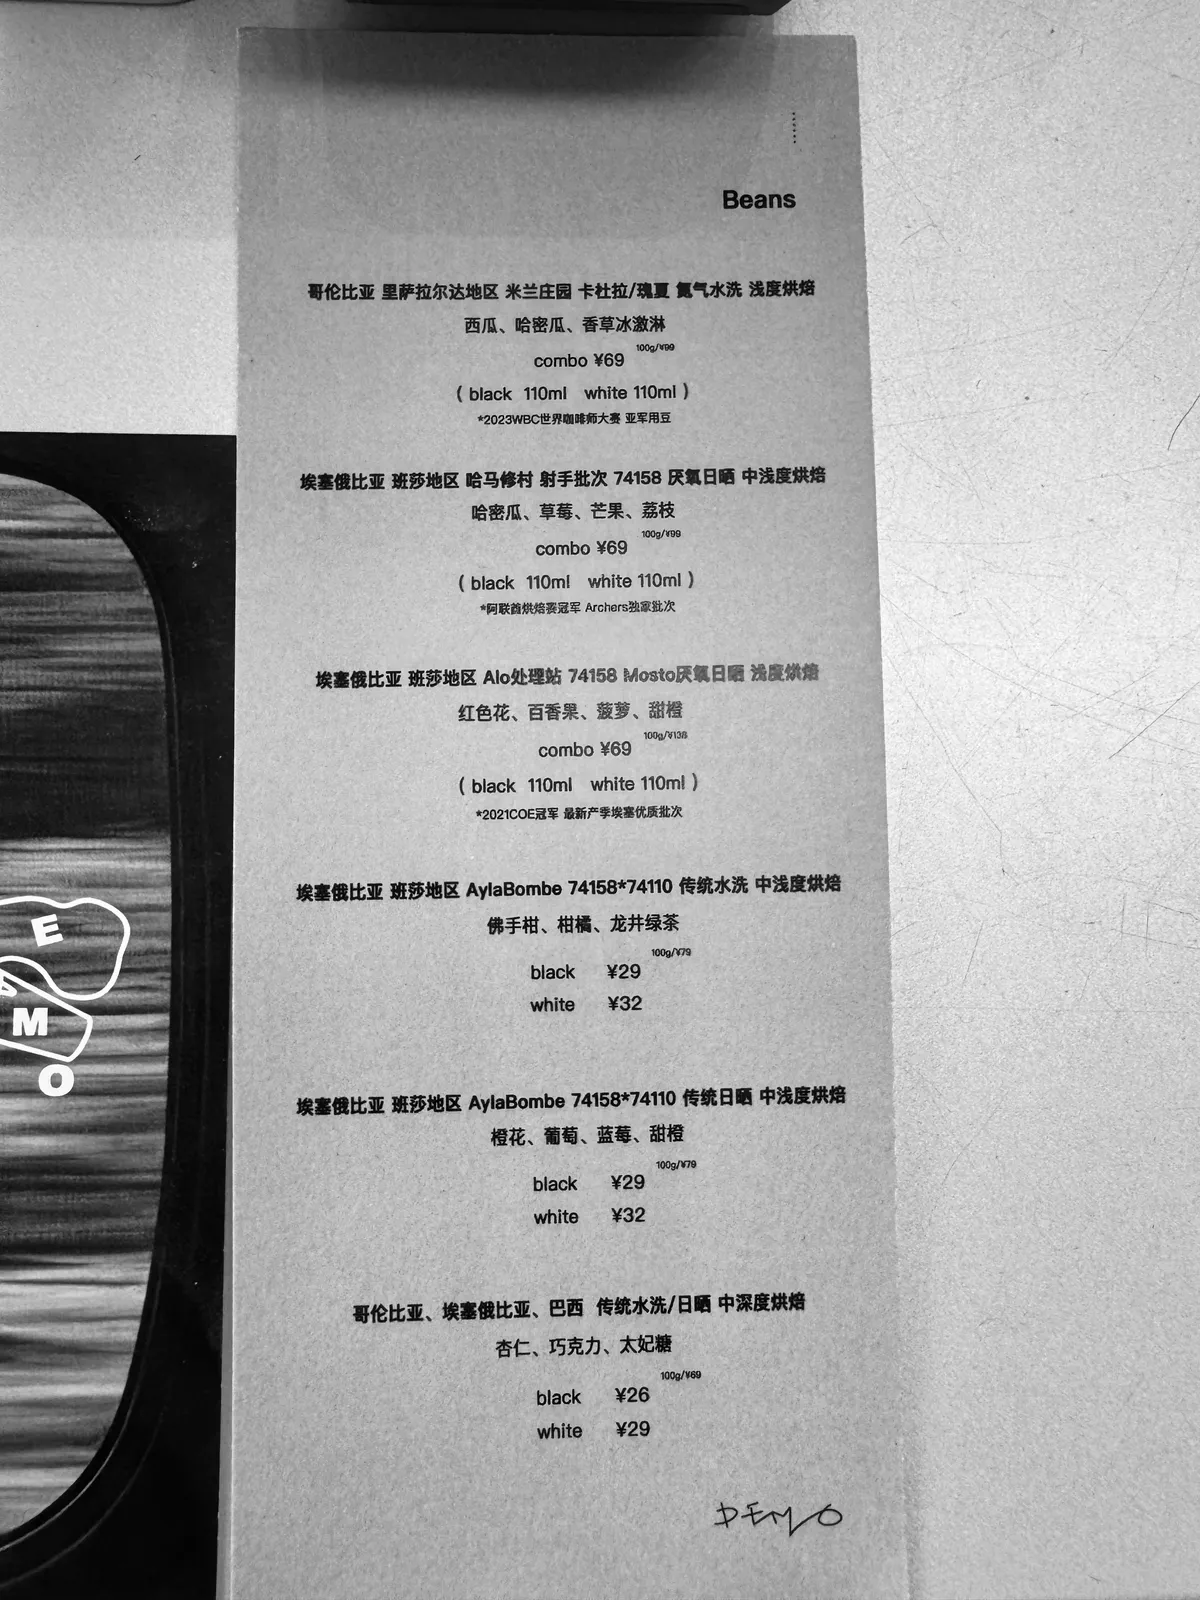 Beans
哥伦比亚 里萨拉尔达地区 米兰庄园 卡杜拉/瑰夏 氮气水洗 浅度烘焙
西瓜、哈密瓜、香草冰激淋
combo ¥69 100g/¥99
( black 110ml white 110ml )
*2023WBC世界咖啡师大赛 亚军用豆
埃塞俄比亚 班莎地区 哈马修村 射手批次 74158 厌氧日晒 中浅度烘焙
哈密瓜、草莓、芒果、荔枝
combo ¥69 100g/¥99
( black 110ml white 110ml )
*阿联酋烘焙赛冠军 Archers独家批次
埃塞俄比亚 班莎地区 Alo处理站 74158 Mosto厌氧日晒 浅度烘焙
红色花、百香果、菠萝、甜橙
combo ¥69 100g/¥138
( black 110ml white 110ml )
*2021COE冠军 最新产季埃塞优质批次
埃塞俄比亚 班莎地区 AylaBombe 74158*74110 传统水洗 中浅度烘焙
佛手柑、柑橘、龙井绿茶
black ¥29 100g/¥79
white ¥32
埃塞俄比亚 班莎地区 AylaBombe 74158*74110 传统日晒 中浅度烘焙
橙花、葡萄、蓝莓、甜橙
black ¥29 100g/¥79
white ¥32
哥伦比亚、埃塞俄比亚、巴西 传统水洗/日晒 中深度烘焙
杏仁、巧克力、太妃糖
black ¥26 100g/¥69
white ¥29
DEMO
E
M
O